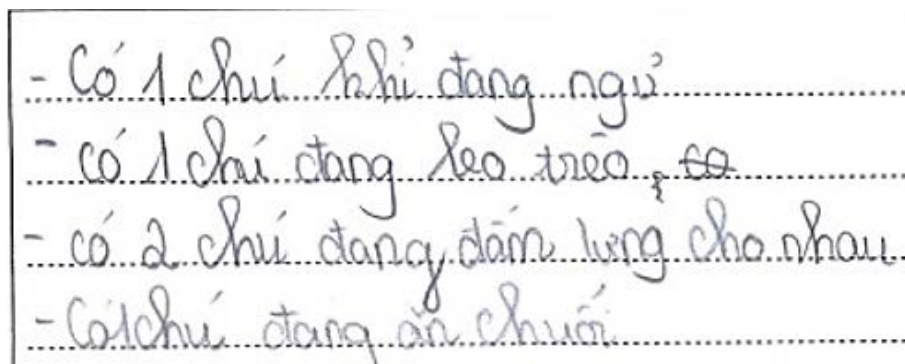 - Có 1 chú khỉ đang ngủ
- có 1 chú đang leo trèo,
- có 2 chú đang đấm lưng cho nhau
- Có 1 chú đang ăn chuối